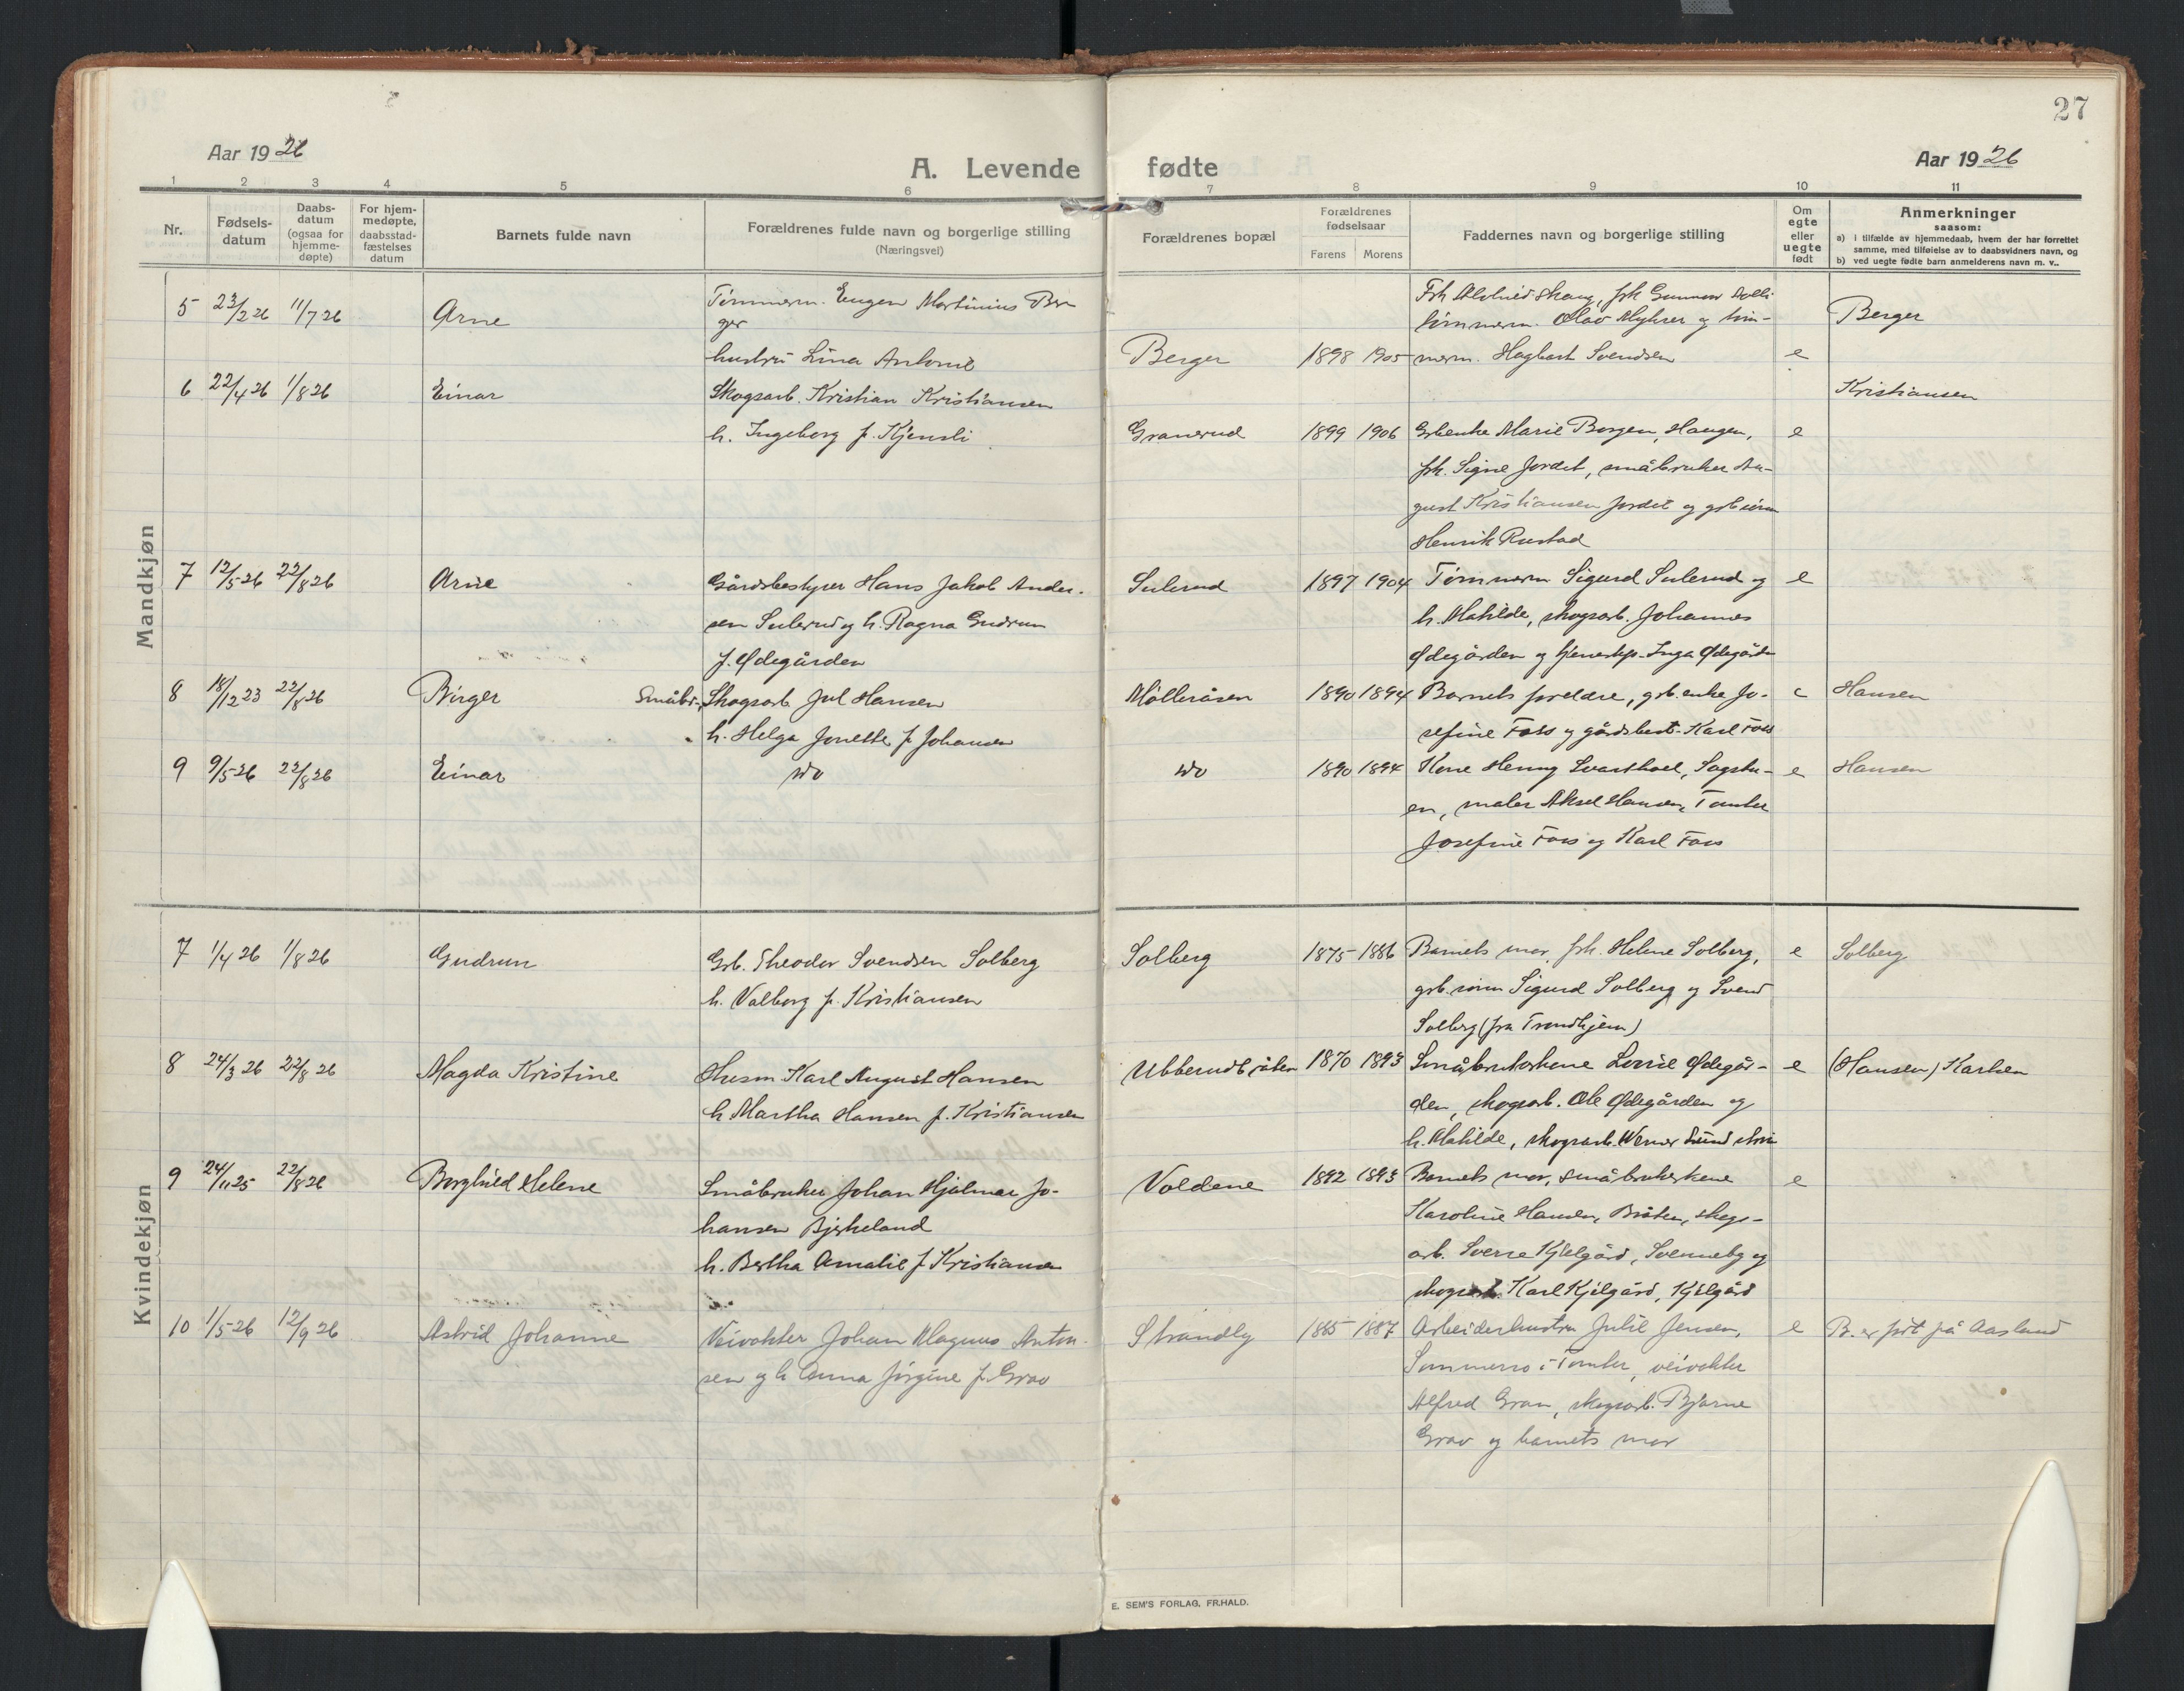 27
Aar 1926
A. Levende fødte
Aar 1926
1 2 3 4 5 6 7 8 9 10 11
Nr.
Fødsels-
datum
Daabs-
datum
(ogsaa for
hjemme-
døpte)
For hjem-
medøpte,
daabsstad-
fæstelses
datum
Barnets fulde navn
Forældrenes fulde navn og borgerlige stilling
(Næringsvei)
Forældrenes bopæl
Forældrenes
fødselsaar
Farens Morens
Faddernes navn og borgerlige stilling
Om
egte
eller
uegte
født
Anmerkninger
saasom:
a) i tilfælde av hjemmedaab, hvem der har forrettet
samme, med tilføielse av to daabsvidners navn, og
b) ved uegte fødte barn anmelderens navn m. v..
Mandkjøn
5 23/2 26 11/7 26 Arne
Tømmerm. Eugen Martinius Ber
ger
hustru Lina Antonie
Berger 1898 1905
Frk Skaug, frk Gunnor
tømmerm. Olav Myhrer og tøm-
merm. Hagbart Svendsen
e
Berger
6 22/4 26 1/8 26 Einar
Skogsarb. Kristian Kristiansen
h. Ingeborg f. Kjensli
Granerud 1899 1906
Grbenke Marie Borgen, Haugen,
frk. Signe Jordet, småbruker Au-
gust Kristiansen Jordet og grb
Henrik Rustad
e
Kristiansen
7 12/5 26 22/8 26 Arne
Gårdsbestyrer Hans Jakob Ander-
sen Sulerud og h. Ragna Gudrun
f. Ødegården
Sulerud 1897 1904
Tømmerm Sigurd Sulerud og
h. Mathilde, skogsarb. Johannes
Ødegården og Inga Ødegården
e
8 18/12 23 22/8 26 Birger
Småbr. Skogsarb Jul Hansen
h. Helga Jonette f. Johansen
Mølleråsen 1890 1894
Barnets foreldre, grb. enke Jo-
sefine Foss og gårdsbest. Karl Foss
e
Hansen
9 9/5 26 22/8 26 Einar
do
do 1890 1894
Kone Henny Svarthoel, Sagstu-
en, maler Aksel Hansen, Tomter
Josefine Foss og Karl Foss
e
Hansen
Kvindekjøn
7 1/4 26 1/8 26 Gudrun
Grb. Theodor Svendsen Solberg
h. Valborg f. Kristiansen
Solberg 1875 1886
Barnets mor, frk. Helene Solberg,
grb. sønn Sigurd Solberg og Svend
Solberg (fra Trondhjem)
e
Solberg
8 24/3 26 22/8 26 Magda Kristine
Husm Karl August Hansen
h Martha Hansen f. Kristiansen
Ubberudbråten 1870 1893
Småbrukerkone Lovise Ødegår-
den, skogsarb. Ole Ødegården og
h. Mathilde, skogsarb. Werner
e
(Hansen) Karlsen
9 24/11 25 22/8 26 Borghild Helene
Småbruker Johan Hjalmar Jo-
hansen Bjerkeland
h. Bertha Amalie f Kristiansen
Voldene 1892 1893
Barnets mor, småbrukerkone
Karoline Hansen, Bråten, skogs-
arb. Sverre Kjelgård, Svenneby og
skogsarb. Karl Kjelgård, Kjelgård
e
10 1/5 26 12/9 26 Astrid Johanne
Veivokter Johan Magnus Anton-
sen og h Anna Jørgine f. Grav
Strandly 1885 1887
Arbeiderhustru Julie Jensen,
Sommerro i Tomter, veivokter
Alfred Grav, skogsarb. Bjarne
Grav og barnets mor
e
B. er født på Aasland
E. SEM'S FORLAG, FR.HALD.